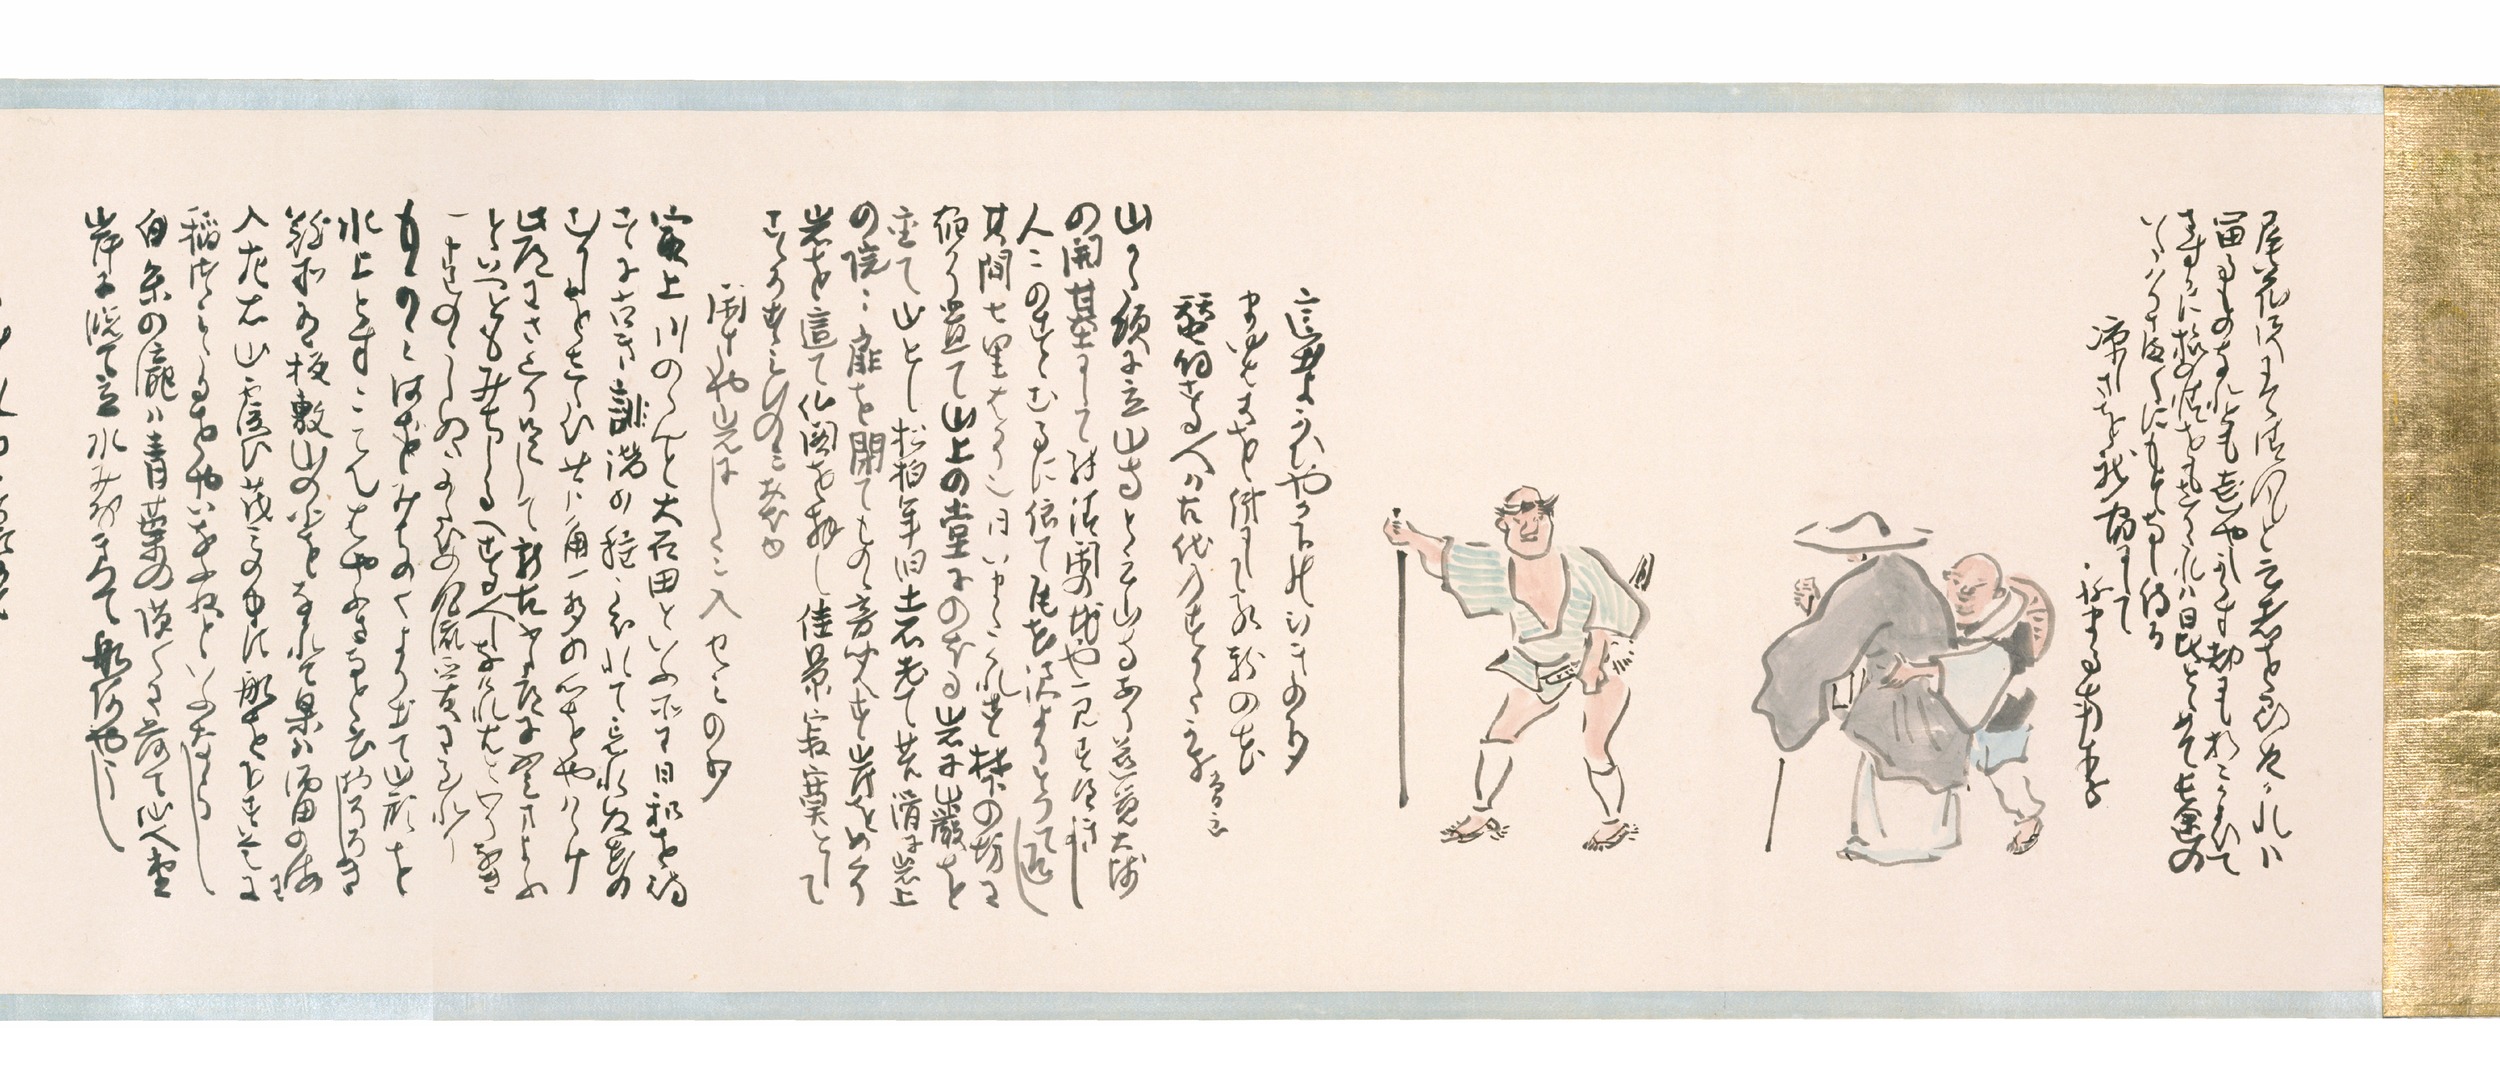 尾花沢にて清風と云者を尋ぬかれハ
富るものなれとも志いやしからす都にも折々かよひて
さすかに旅の情をも知たれハ日比とゝめて長途の
いたハりさま〱にもてなし侍る
涼しさを我宿にして
ねまる也
這出よかひやか下のひきの声
まゆはきを俤にして紅粉の花
蚕飼する人ハ古代のすかた哉 曾良
山形領に立山寺と云山寺あり慈覚大師
の開基にして殊清閑の地也一見すへきよし
人々のすゝむるに依て尾花沢よりとつて返し
其間七里はかり也日いまた暮す梺の坊に
宿かり置て山上の堂にのほる岩に巌を
重て山とし松柏年旧土石老て苔滑に岩上
の院々扉を閉てもの音聞えす岸をめくり
岩を這て仏閣を拝し佳景寂寞として
こゝろすみ行のミおほゆ
閑さや岩にしみ入せミの声
最上川のらんと大石田といふ所に日和を待
こゝに古き誹諧の種こほれて忘れぬ花の
むかしをしたひ芦角一声の心をやハらけ
此道にさくり足して新古ふた道にふみまよふ
といへともみちしるへする人しなけれはとわりなき
一巻のこしぬこのたひの風流爰に至れり
もかミ川ハみちのくより出て山形を
水上とすこてんはやふさなと云おそろしき
難所有板敷山の北をなかれて果ハ酒田の海に
入左右山覆ひ茂ミの中に船を下す是に
稲つミたるをやいな舟といふならし
白糸の瀧ハ青葉の隙〱に落て仙人堂
岸に臨て立水みなきつて船あやうし